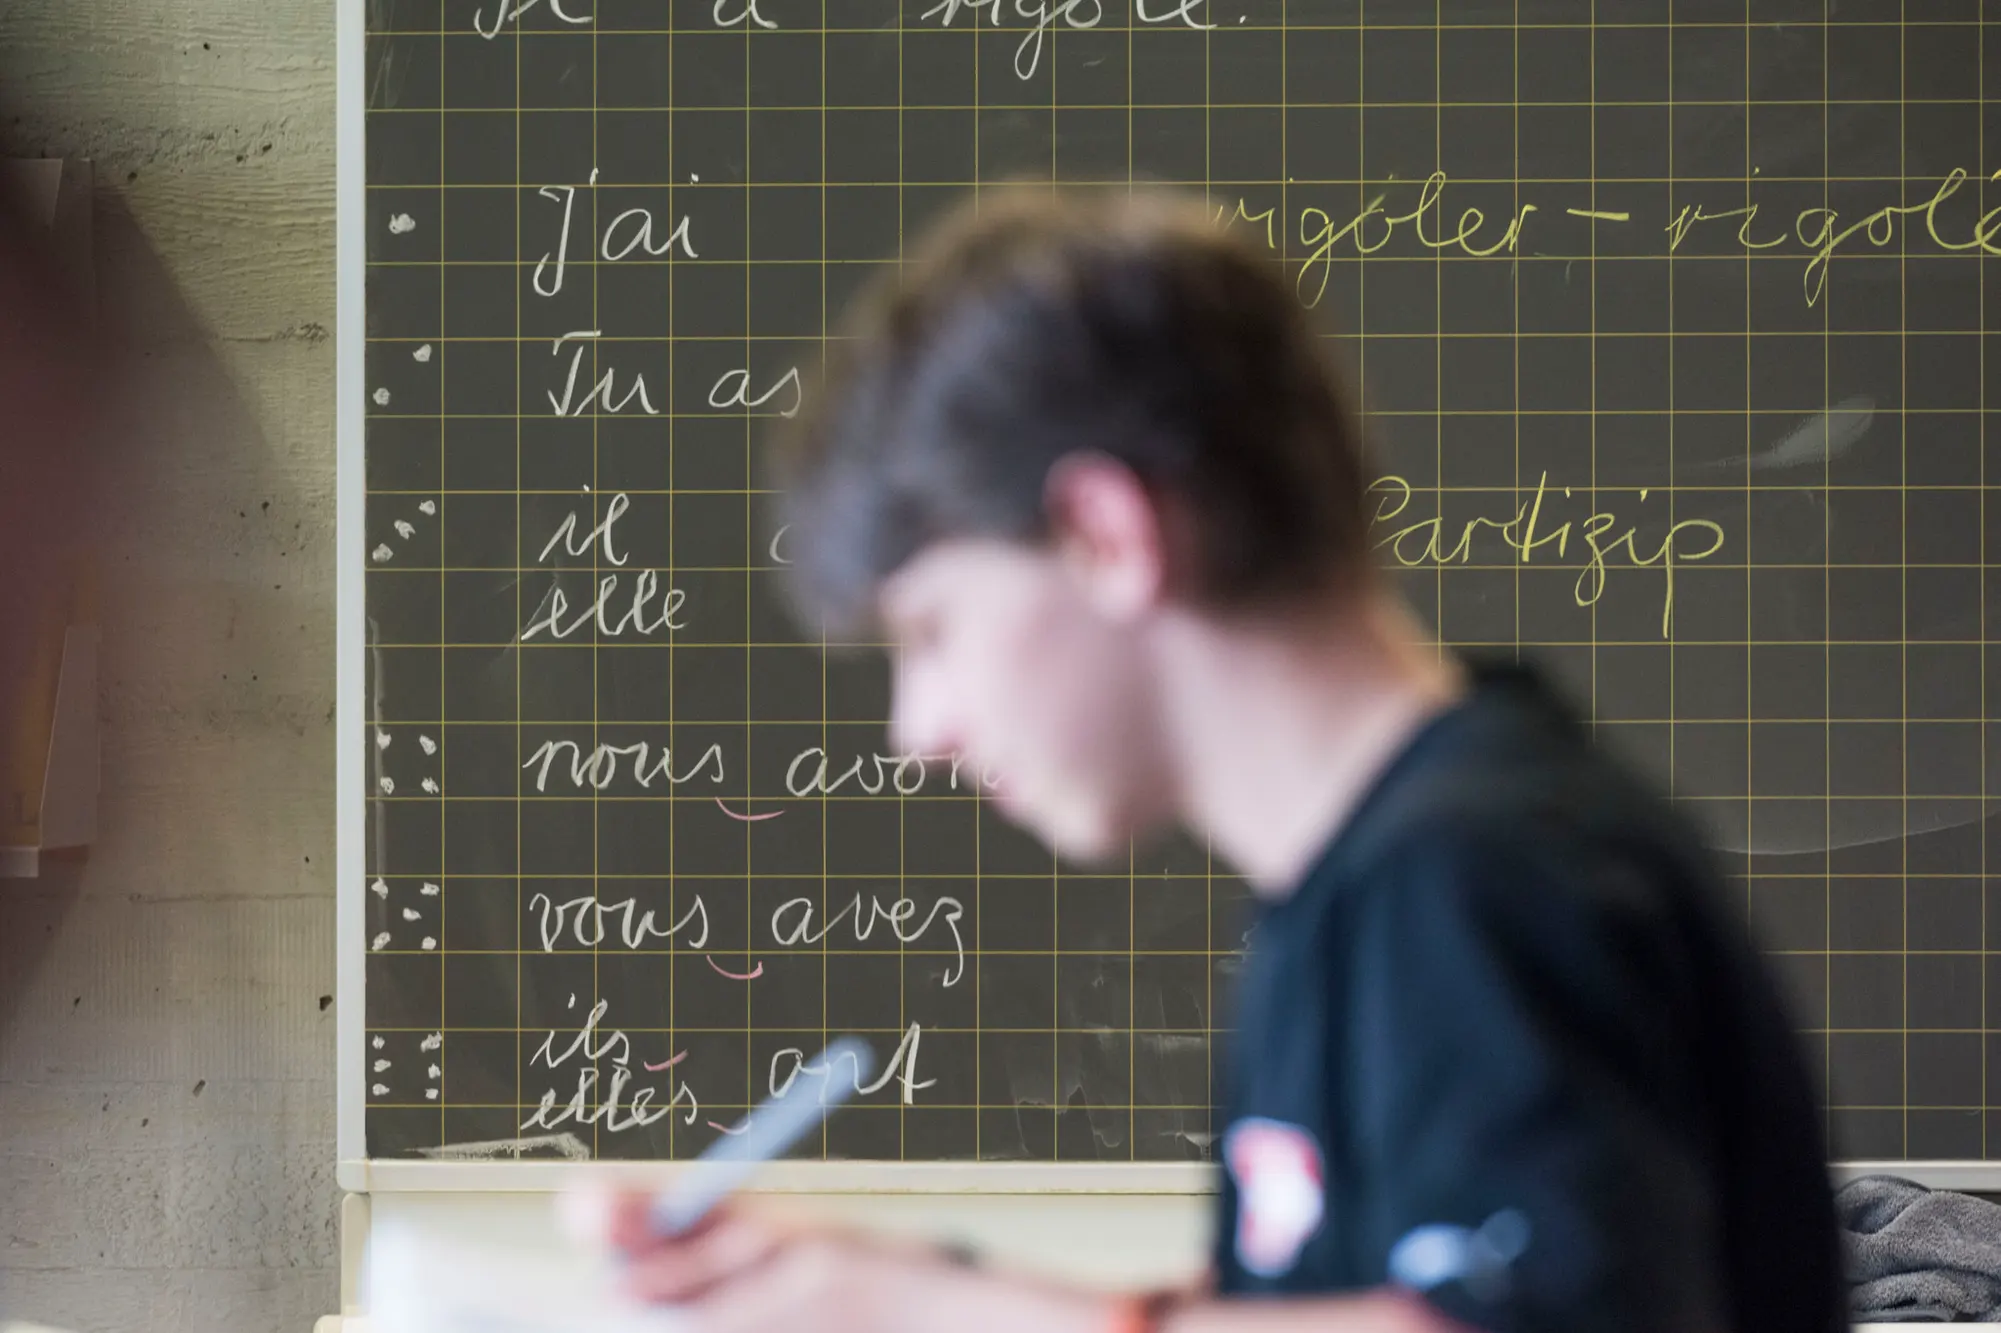 a rigolé.
J'ai rigoler – rigolé
Tu as
il
elle
Partizip
nous
vous avez
ils
elles ont